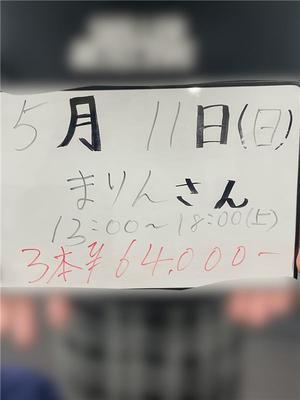 5月11日(日)
まりんさん
13:00~18:00(土)
3本¥64,000-